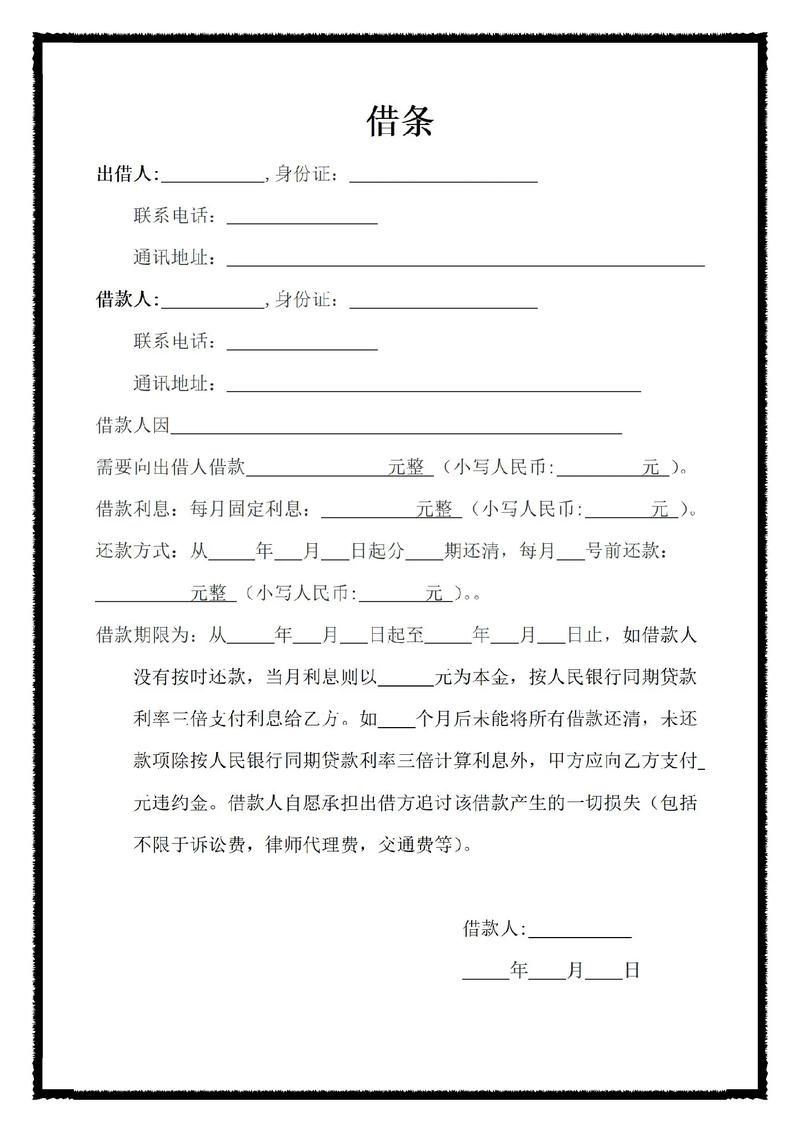 借条
出借人:___________,身份证：____________________
联系电话：________________
通讯地址：___________________________________________________
借款人:___________,身份证：____________________
联系电话：________________
通讯地址：____________________________________________
借款人因________________________________________________
需要向出借人借款_______________元整（小写人民币:_________元_）。
借款利息：每月固定利息：__________元整（小写人民币:_______元_）。
还款方式：从_____年___月___日起分____期还清，每月___号前还款：
__________元整（小写人民币:_______元_）。。
借款期限为：从_____年___月___日起至_____年___月___日止，如借款人
没有按时还款，当月利息则以______元为本金，按人民银行同期贷款
利率三倍支付利息给乙方。如____个月后未能将所有借款还清，未还
款项除按人民银行同期贷款利率三倍计算利息外，甲方应向乙方支付_
元违约金。借款人自愿承担出借方追讨该借款产生的一切损失（包括
不限于诉讼费，律师代理费，交通费等）。
借款人:___________
_____年____月____日